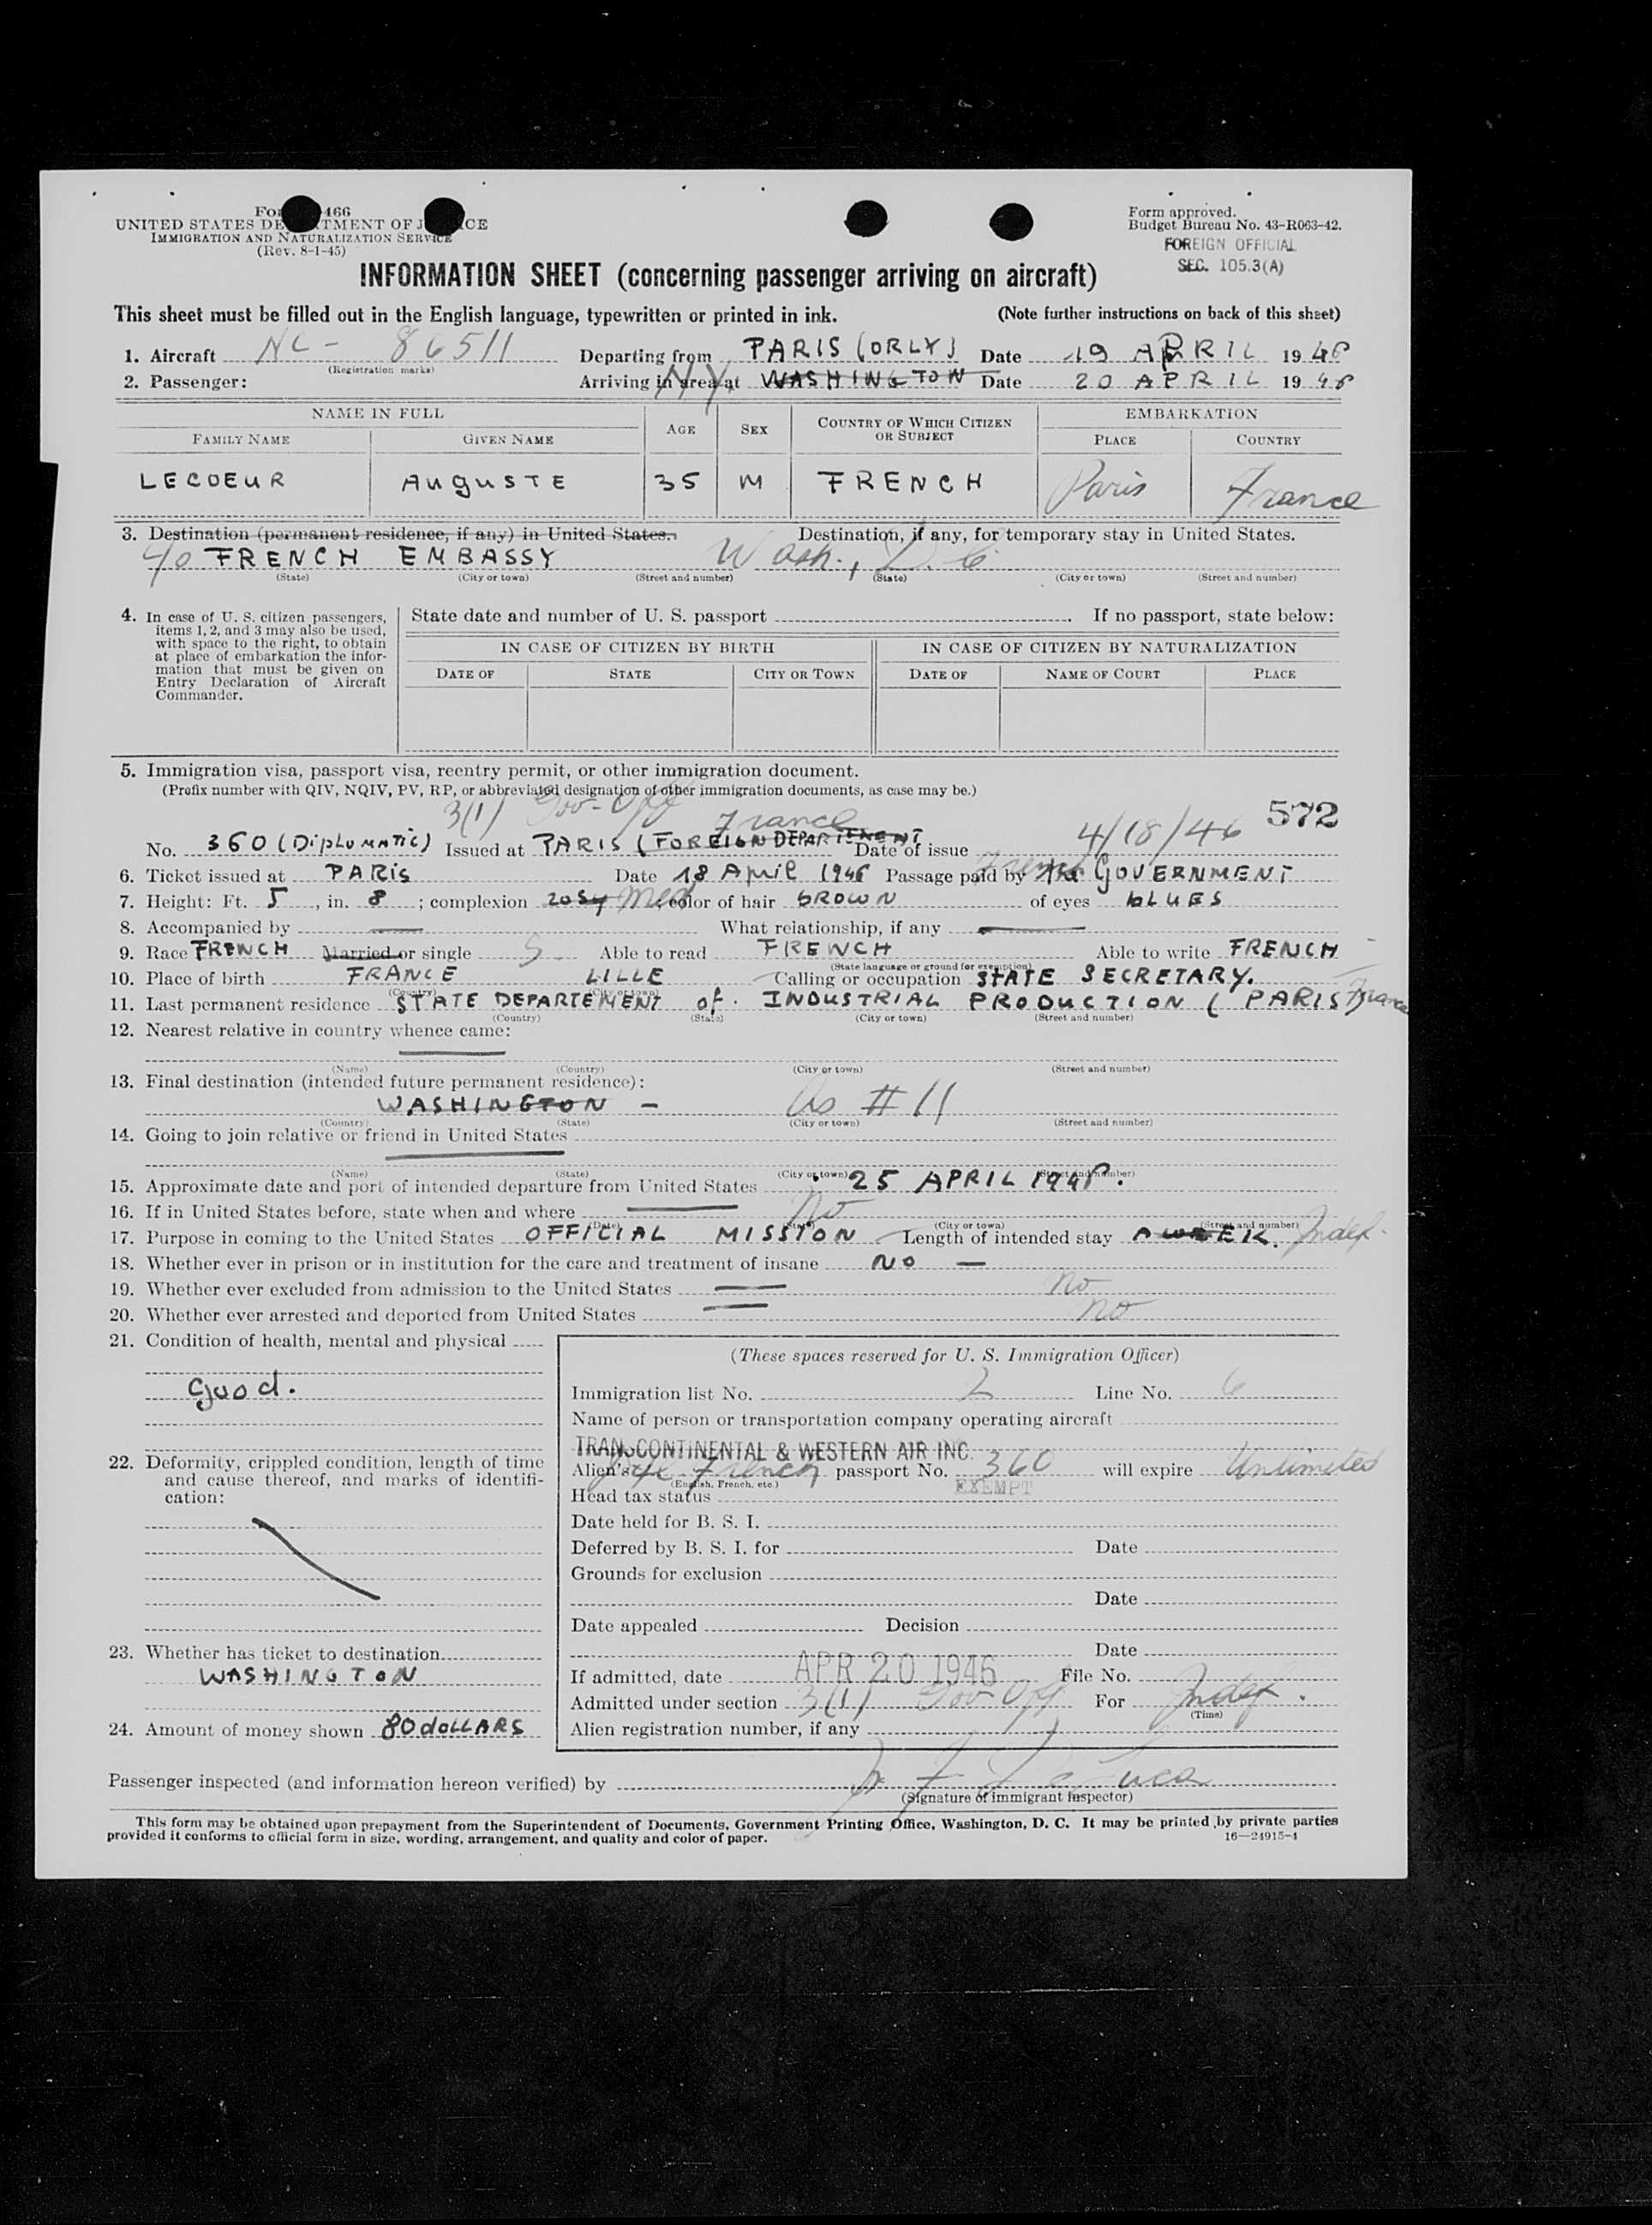 UNITED STATES DEPARTMENT OF JUSTICE
IMMIGRATION AND NATURALIZATION SERVICE
(Rev. 8-1-45)
Form approved.
Budget Bureau No. 43-R063-42.
FOREIGN OFFICIAL
SEC. 105.3(A)
INFORMATION SHEET (concerning passenger arriving on aircraft)
This sheet must be filled out in the English language, typewritten or printed in ink. (Note further instructions on back of this sheet)
1. Aircraft NC- 86511 Departing from PARIS (ORLY) Date 19 APRIL 1946
(Registration marks)
2. Passenger: Arriving in area at N.Y. WASHINGTON Date 20 APRIL 1946
NAME IN FULL AGE SEX COUNTRY OF WHICH CITIZEN OR SUBJECT EMBARKATION
FAMILY NAME GIVEN NAME PLACE COUNTRY
LECOEUR AUGUSTE 35 M FRENCH Paris France
3. Destination (permanent residence, if any) in United States. Destination, if any, for temporary stay in United States.
c/o FRENCH EMBASSY Wash., D.C.
(State) (City or town) (Street and number) (State) (City or town) (Street and number)
4. In case of U. S. citizen passengers, items 1, 2, and 3 may also be used, with space to the right, to obtain at place of embarkation the information that must be given on Entry Declaration of Aircraft Commander.
State date and number of U. S. passport. If no passport, state below:
IN CASE OF CITIZEN BY BIRTH IN CASE OF CITIZEN BY NATURALIZATION
DATE OF STATE CITY OR TOWN DATE OF NAME OF COURT PLACE
5. Immigration visa, passport visa, reentry permit, or other immigration document.
(Prefix number with QIV, NQIV, PV, RP, or abbreviated designation of other immigration documents, as case may be.)
3(1) Gov-Off France 572
No. 360 (DIPLOMATIC) Issued at PARIS (FOREIGN DEPARTEMENT Date of issue 4/18/46
6. Ticket issued at PARIS Date 18 April 1946 Passage paid by French The GOVERNMENT
7. Height: Ft. 5, in. 8; complexion rosy Med color of hair BROWN of eyes BLUES
8. Accompanied by What relationship, if any
9. Race FRENCH Married or single S Able to read FRENCH Able to write FRENCH
(State language or ground for exemption)
10. Place of birth FRANCE LILLE Calling or occupation STATE SECRETARY.
(Country) (City or town)
11. Last permanent residence STATE DEPARTEMENT of INDUSTRIAL PRODUCTION ( PARIS France
(Country) (State) (City or town) (Street and number)
12. Nearest relative in country whence came:
(Name) (Country) (City or town) (Street and number)
13. Final destination (intended future permanent residence):
WASHINGTON - As # 11
(Country) (State) (City or town) (Street and number)
14. Going to join relative or friend in United States
(Name) (State) (City or town) (Street and number)
15. Approximate date and port of intended departure from United States 25 APRIL 1946.
16. If in United States before, state when and where No
(Date) (State) (City or town) (Street and number)
17. Purpose in coming to the United States OFFICIAL MISSION Length of intended stay A WEEK. Indef.
18. Whether ever in prison or in institution for the care and treatment of insane NO
19. Whether ever excluded from admission to the United States No
20. Whether ever arrested and deported from United States no
21. Condition of health, mental and physical
good.
22. Deformity, crippled condition, length of time and cause thereof, and marks of identification:
23. Whether has ticket to destination
WASHINGTON
24. Amount of money shown 80 dollars
(These spaces reserved for U. S. Immigration Officer)
Immigration list No. 2 Line No. 6
Name of person or transportation company operating aircraft
TRANSCONTINENTAL & WESTERN AIR INC.
Alien's French passport No. 360 will expire Unlimited
(English, French, etc.)
Head tax status EXEMPT
Date held for B. S. I.
Deferred by B. S. I. for Date
Grounds for exclusion
Date
Date appealed Decision
Date
If admitted, date APR 20 1946 File No.
Admitted under section 3(1) Gov Off For Indef.
(Time)
Alien registration number, if any
Passenger inspected (and information hereon verified) by
(Signature of immigrant inspector)
This form may be obtained upon prepayment from the Superintendent of Documents, Government Printing Office, Washington, D. C. It may be printed by private parties
provided it conforms to official form in size, wording, arrangement, and quality and color of paper.
16—24915-1